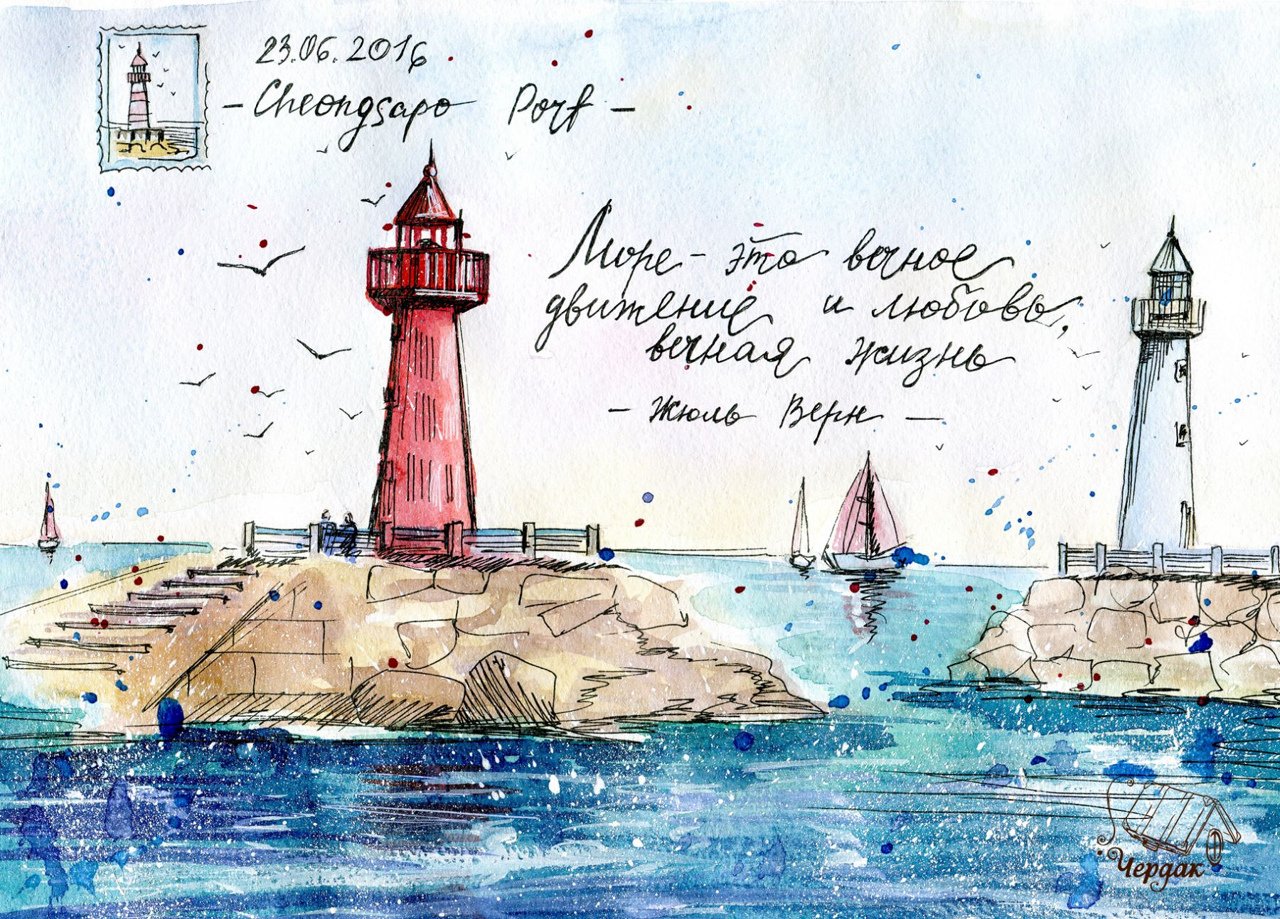 23.06.2016
- Cheongsapo Port -
Море - это вечное
движение и любовь,
вечная жизнь
- Жюль Верн -
Чердак